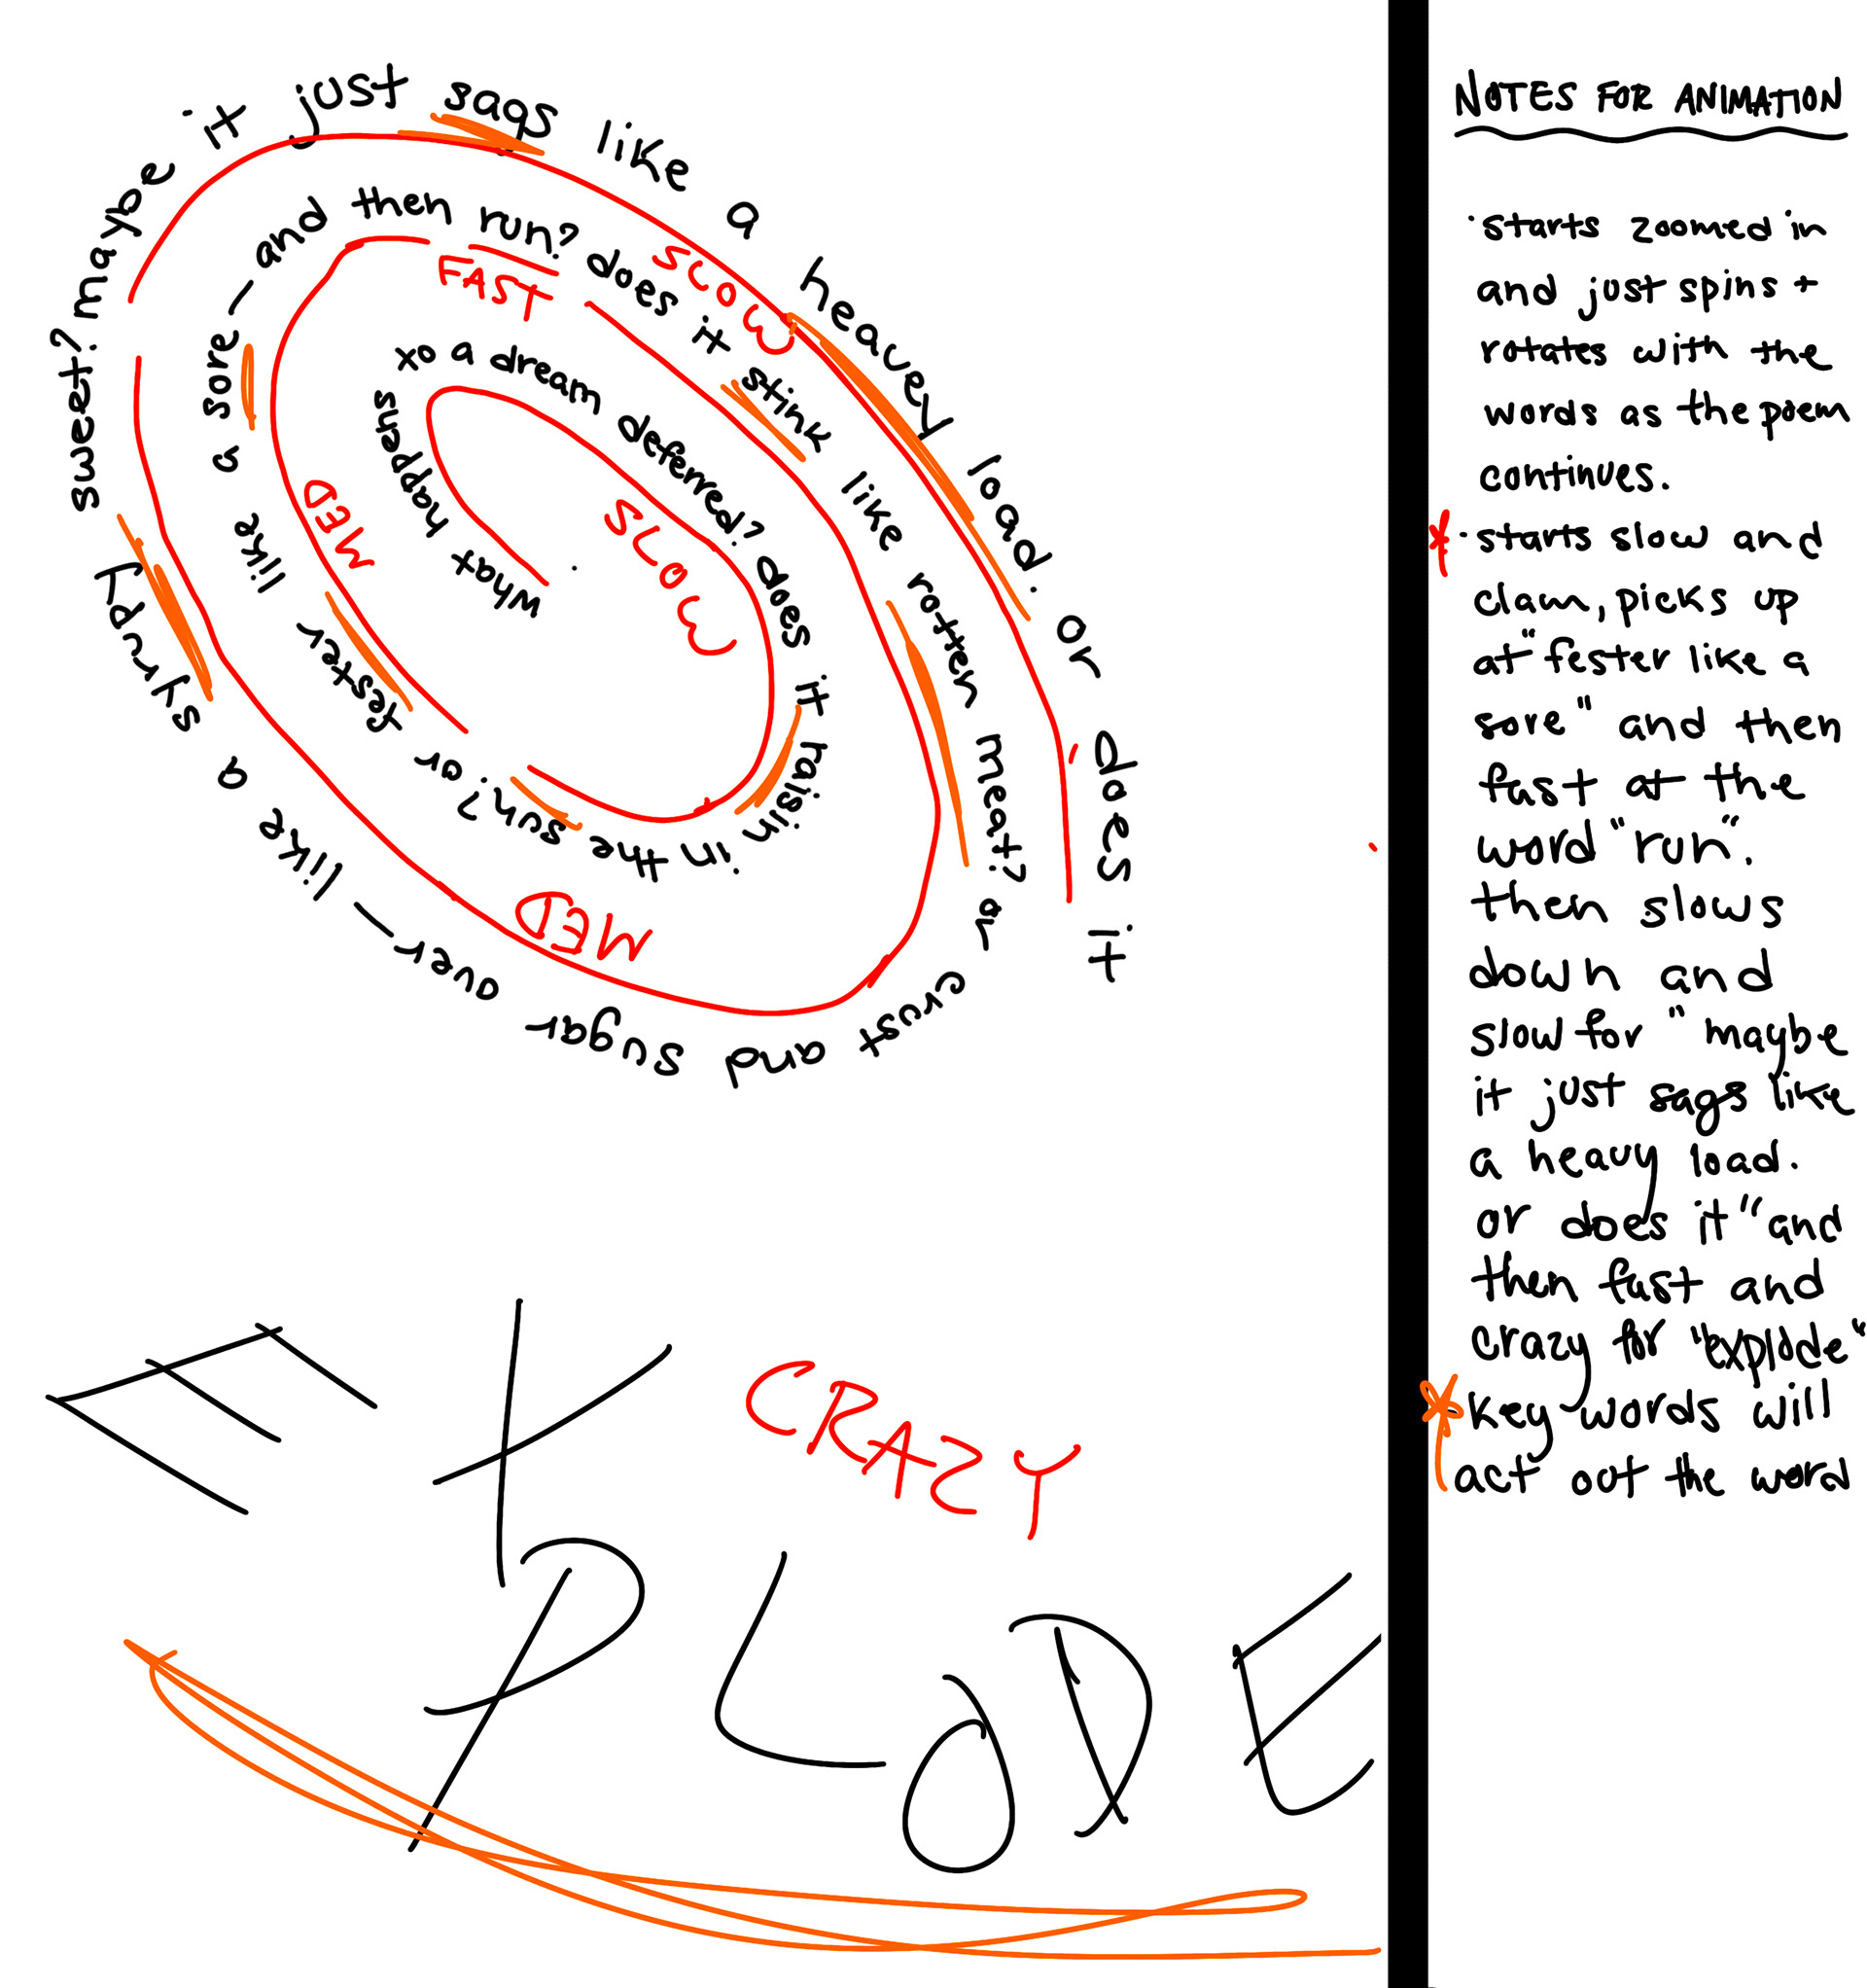 what happens to a dream deferred? does it raisin in the sun? or fester like a sore — and then run? does it stink like rotten meat? or crust and sugar over — like a syrupy sweet? maybe it just sags like a heavey load. or does it
SLOW
MED
MED
FAST
SLOW
EXPLODE
CRAZY
NOTES FOR ANIMATION
·starts zoomed in
and just spins +
rotates with the
words as the poem
continues.
* ·starts slow and
clam, picks up
at "fester like a
sore" and then
fast at the
word "run".
then slows
down and
slow for "maybe
it just sags like
a heavy load.
or does it" and
then fast and
crazy for "explode"
* -key words will
act out the word